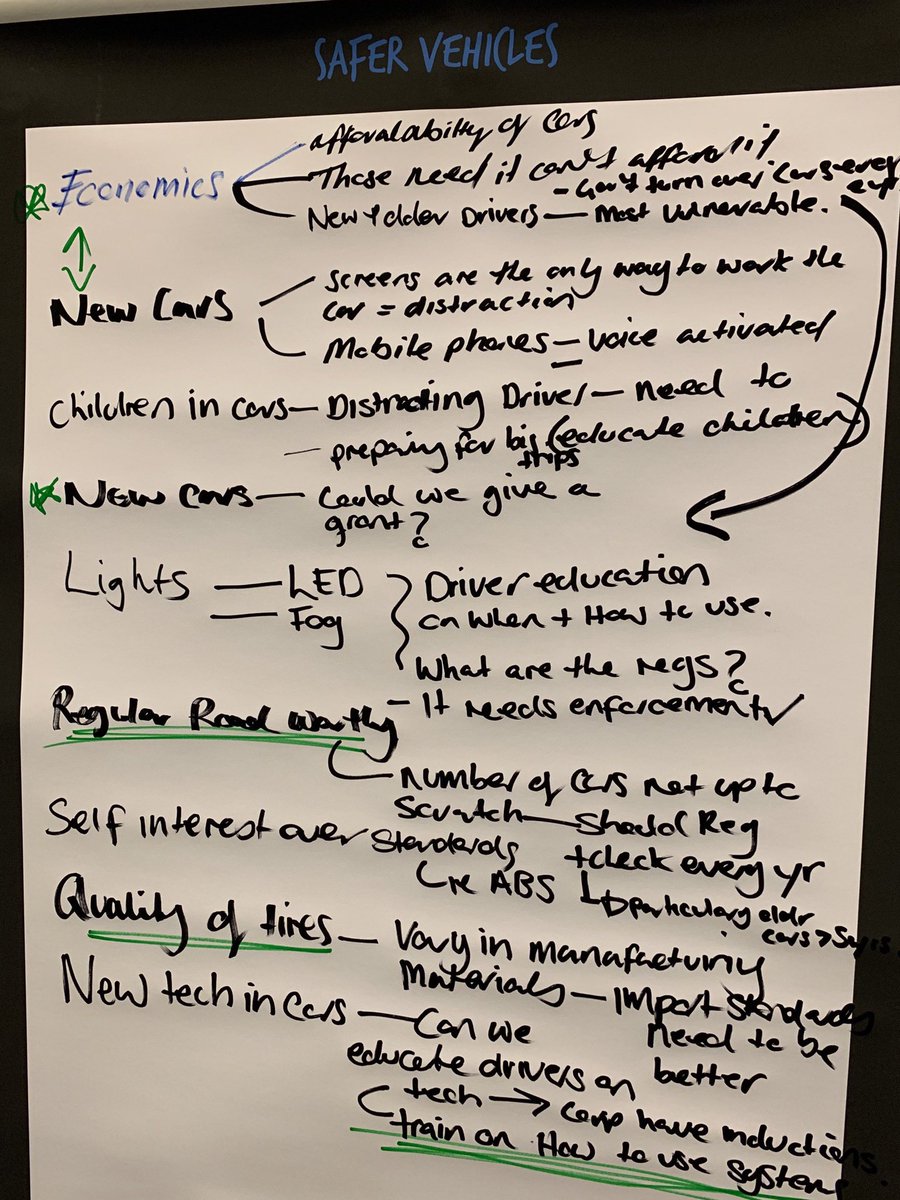 SAFER VEHICLES
Economics
afforalability of Cars
Those need it can't afford it
- Can't turn over Cars every
New + older Drivers — most vulnerable.
New Cars
Screens are the only way to work the
car = distraction
Mobile phones — voice activated
Children in cars — Distracting Driver — need to
(educate children)
— preparing for big
trips
New cars — Could we give a
grant?
Lights — LED
— Fog
Driver education
on When + How to use.
What are the regs?
- It needs enforcement
Regular Road Worthy
Number of Cars not up to
Scratch — Should Reg
+ check every yr
particulary eldr
cars > 5yrs.
Self interest over Standards
re ABS
Quality of tires — Vary in manafacturing
Materials — Import Standards
Need to be
better
New tech in Cars — Can we
educate drivers on
tech → have inductions.
train on How to use systems